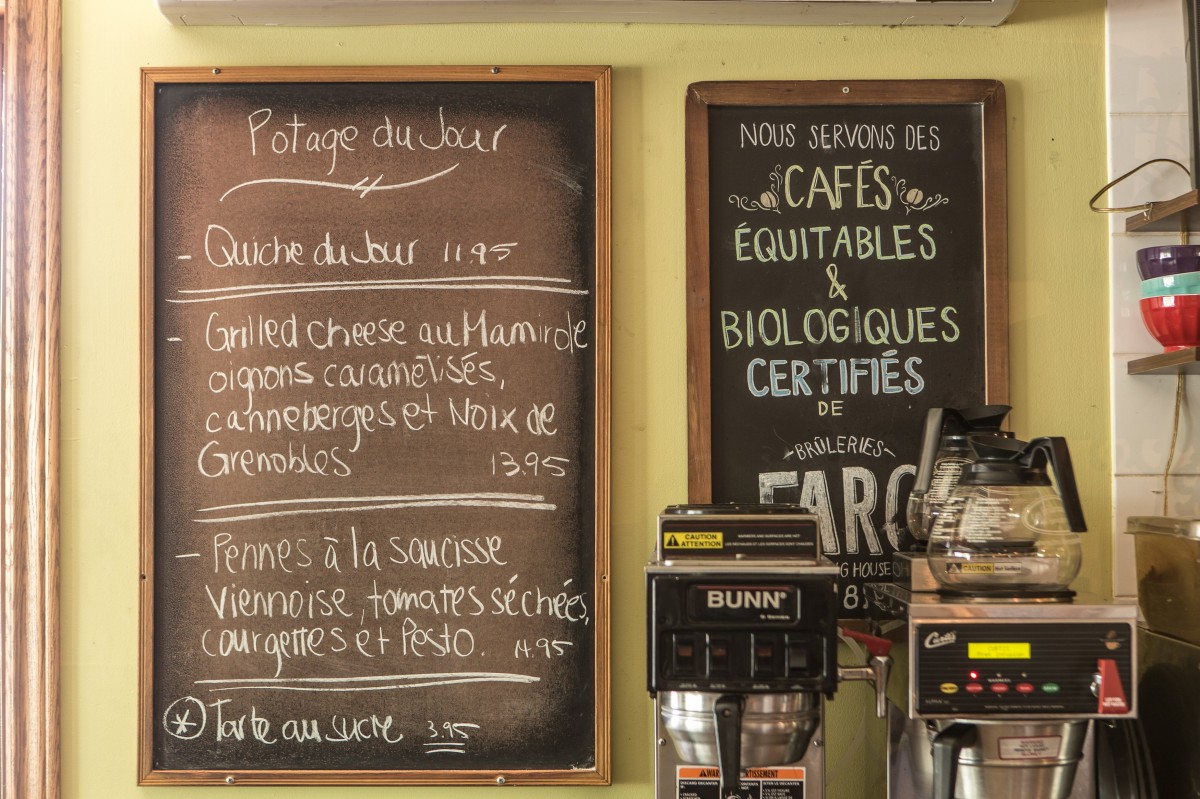 Potage du Jour
- Quiche du Jour 11.95
- Grilled cheese au Mamirole
oignons caramélisés,
canneberges et Noix de
Grenobles 13.95
- Pennes à la saucisse
Viennoise, tomates séchées,
courgettes et Pesto. 14.95
* Tarte au sucre 3.95
NOUS SERVONS DES
CAFÉS
ÉQUITABLES
&
BIOLOGIQUES
CERTIFIÉS
DE
-BRÛLERIES-
FARO
CAUTION
ATTENTION
BUNN
Curtis
CAUTION
WARNING AVERTISSEMENT